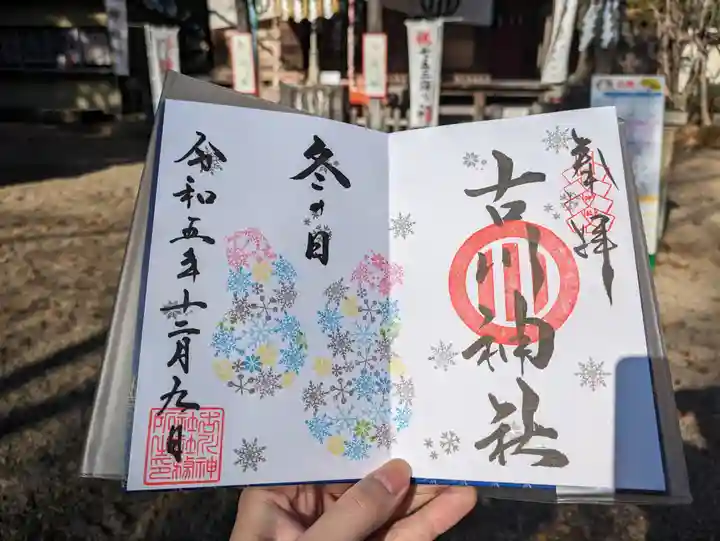 奉拝
古川神社
冬の日
令和五年十二月九日
七五三